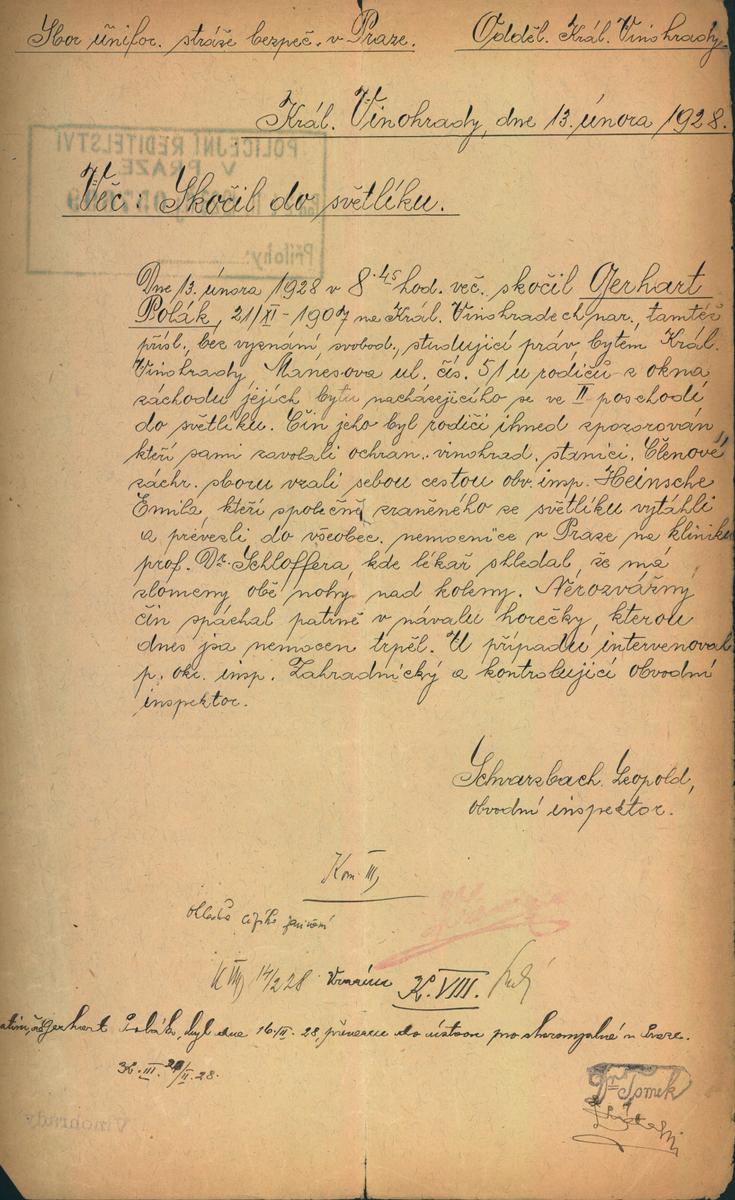 Sbor unifor. stráže bezpeč. v Praze. Odděl. Král. Vinohrady.
Král. Vinohrady, dne 13. února 1928.
POLICEJNÍ ŘEDITELSTVÍ
V PRAZE
Přílohy:
Věc: Skočil do světlíku.
Dne 13. února 1928 v 8.45 hod. več. skočil Gerhart
Polák, 21/XI - 1907 na Král. Vinohradech nar., tamtéž
přísl., bez vyznání, svobod., studující práv bytem Král.
Vinohrady, Manesova ul. čís. 51 u rodičů z okna
záchodu jejích bytu nacházejícího se ve II poschodí
do světlíku. Čin jeho byl rodiči ihned zpozorován,
kteří sami zavolali ochran. vinohrad. stanici. Členové
záchr. sboru vzali sebou cestou obv. insp. Heinsche
Emila, kteří společně zraněného ze světlíku vytáhli
a převezli do všeobec. nemocnice v Praze na kliniku
prof. Dr. Schloffera, kde lékař shledal, že má
zlomeny obě nohy nad koleny. Nerozvážný
čin spáchal patrně v návalu horečky, kterou
dnes jsa nemocen trpěl. U případu intervenoval
p. okr. insp. Zahradnický a kontrolující obvodní
inspektor.
Schvarzbach Leopold,
obvodní inspektor.
Kom. III,
14/2 28 K. VIII.
Gerhart Polák, byl dne 16/II. 28, převezen do ústavu pro choromyslné v Praze.
K. III. 28/II. 28.
Dr. Tomek
Vinohrady